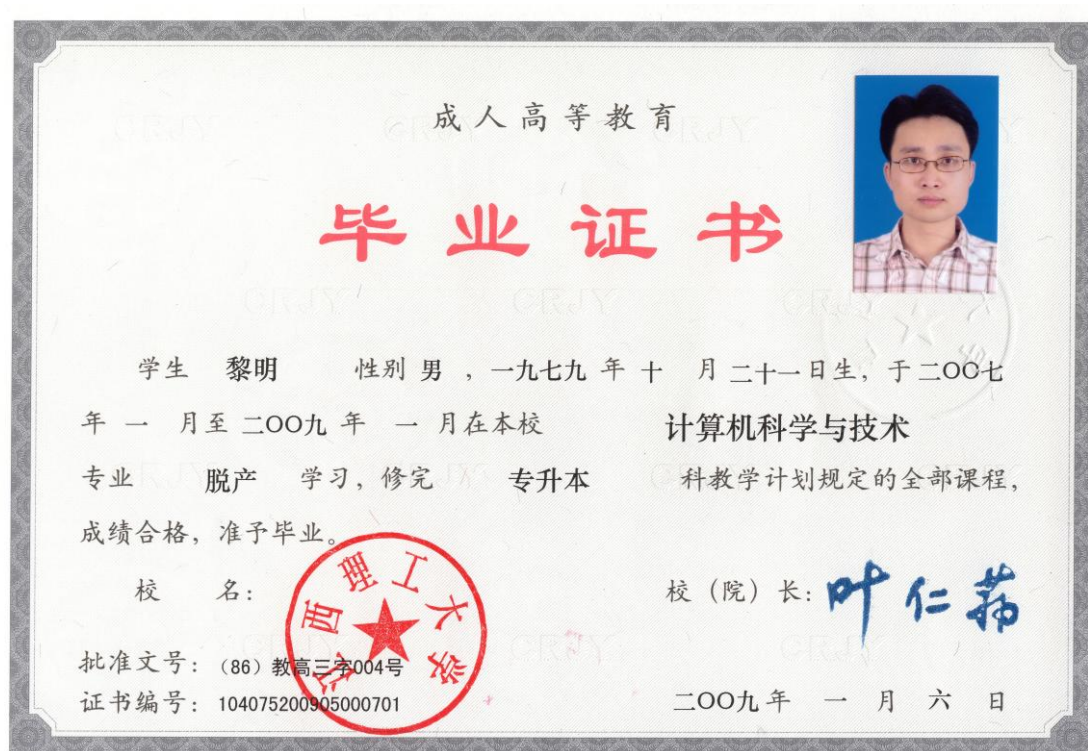 成人高等教育
毕业证书
学生 黎明 性别 男 ，一九七九 年 十 月 二十一 日生，于 二〇〇七
年 一 月至 二〇〇九 年 一 月在本校 计算机科学与技术
专业 脱产 学习，修完 专升本 科教学计划规定的全部课程，
成绩合格，准予毕业。
校 名：
江西理工大学
校（院）长：叶仁荪
批准文号：（86）教高三字004号
证书编号：104075200905000701
二〇〇九 年 一 月 六 日